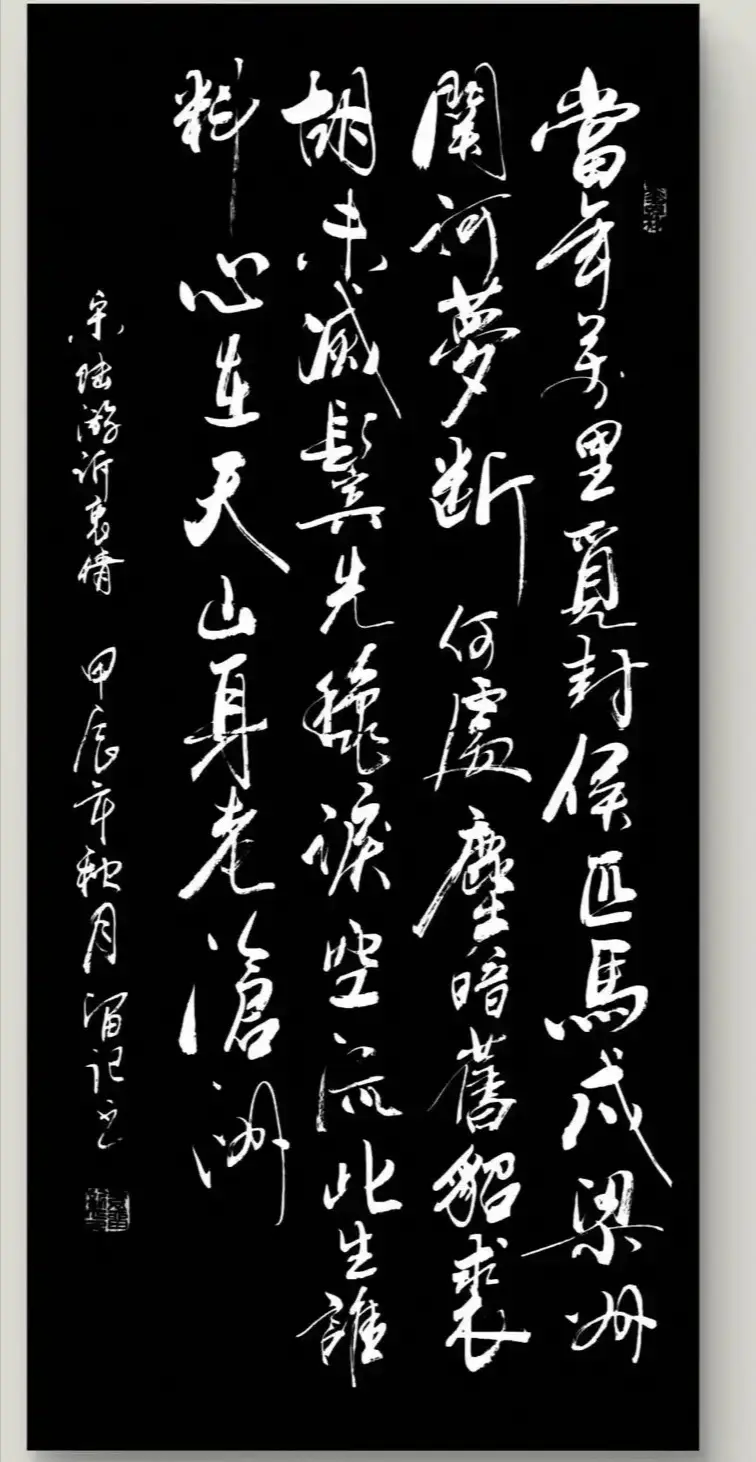 當年萬里覓封侯匹馬戍梁州
關河夢斷何處塵暗舊貂裘
胡未滅鬢先秋淚空流此生誰
料心在天山身老滄洲
宋陆游诉衷情 甲辰年秋月 留记书